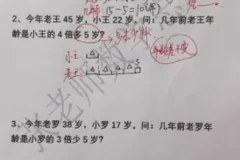 15-5=10(年)
2、今年老王 45 岁，小王 22 岁，问：几年前老王年
龄是小王的 4 倍多 5 岁？
小王
老王
5
3、今年老罗 38 岁，小罗 17 岁，问：几年前老罗年
龄是小罗的 3 倍少 5 岁？